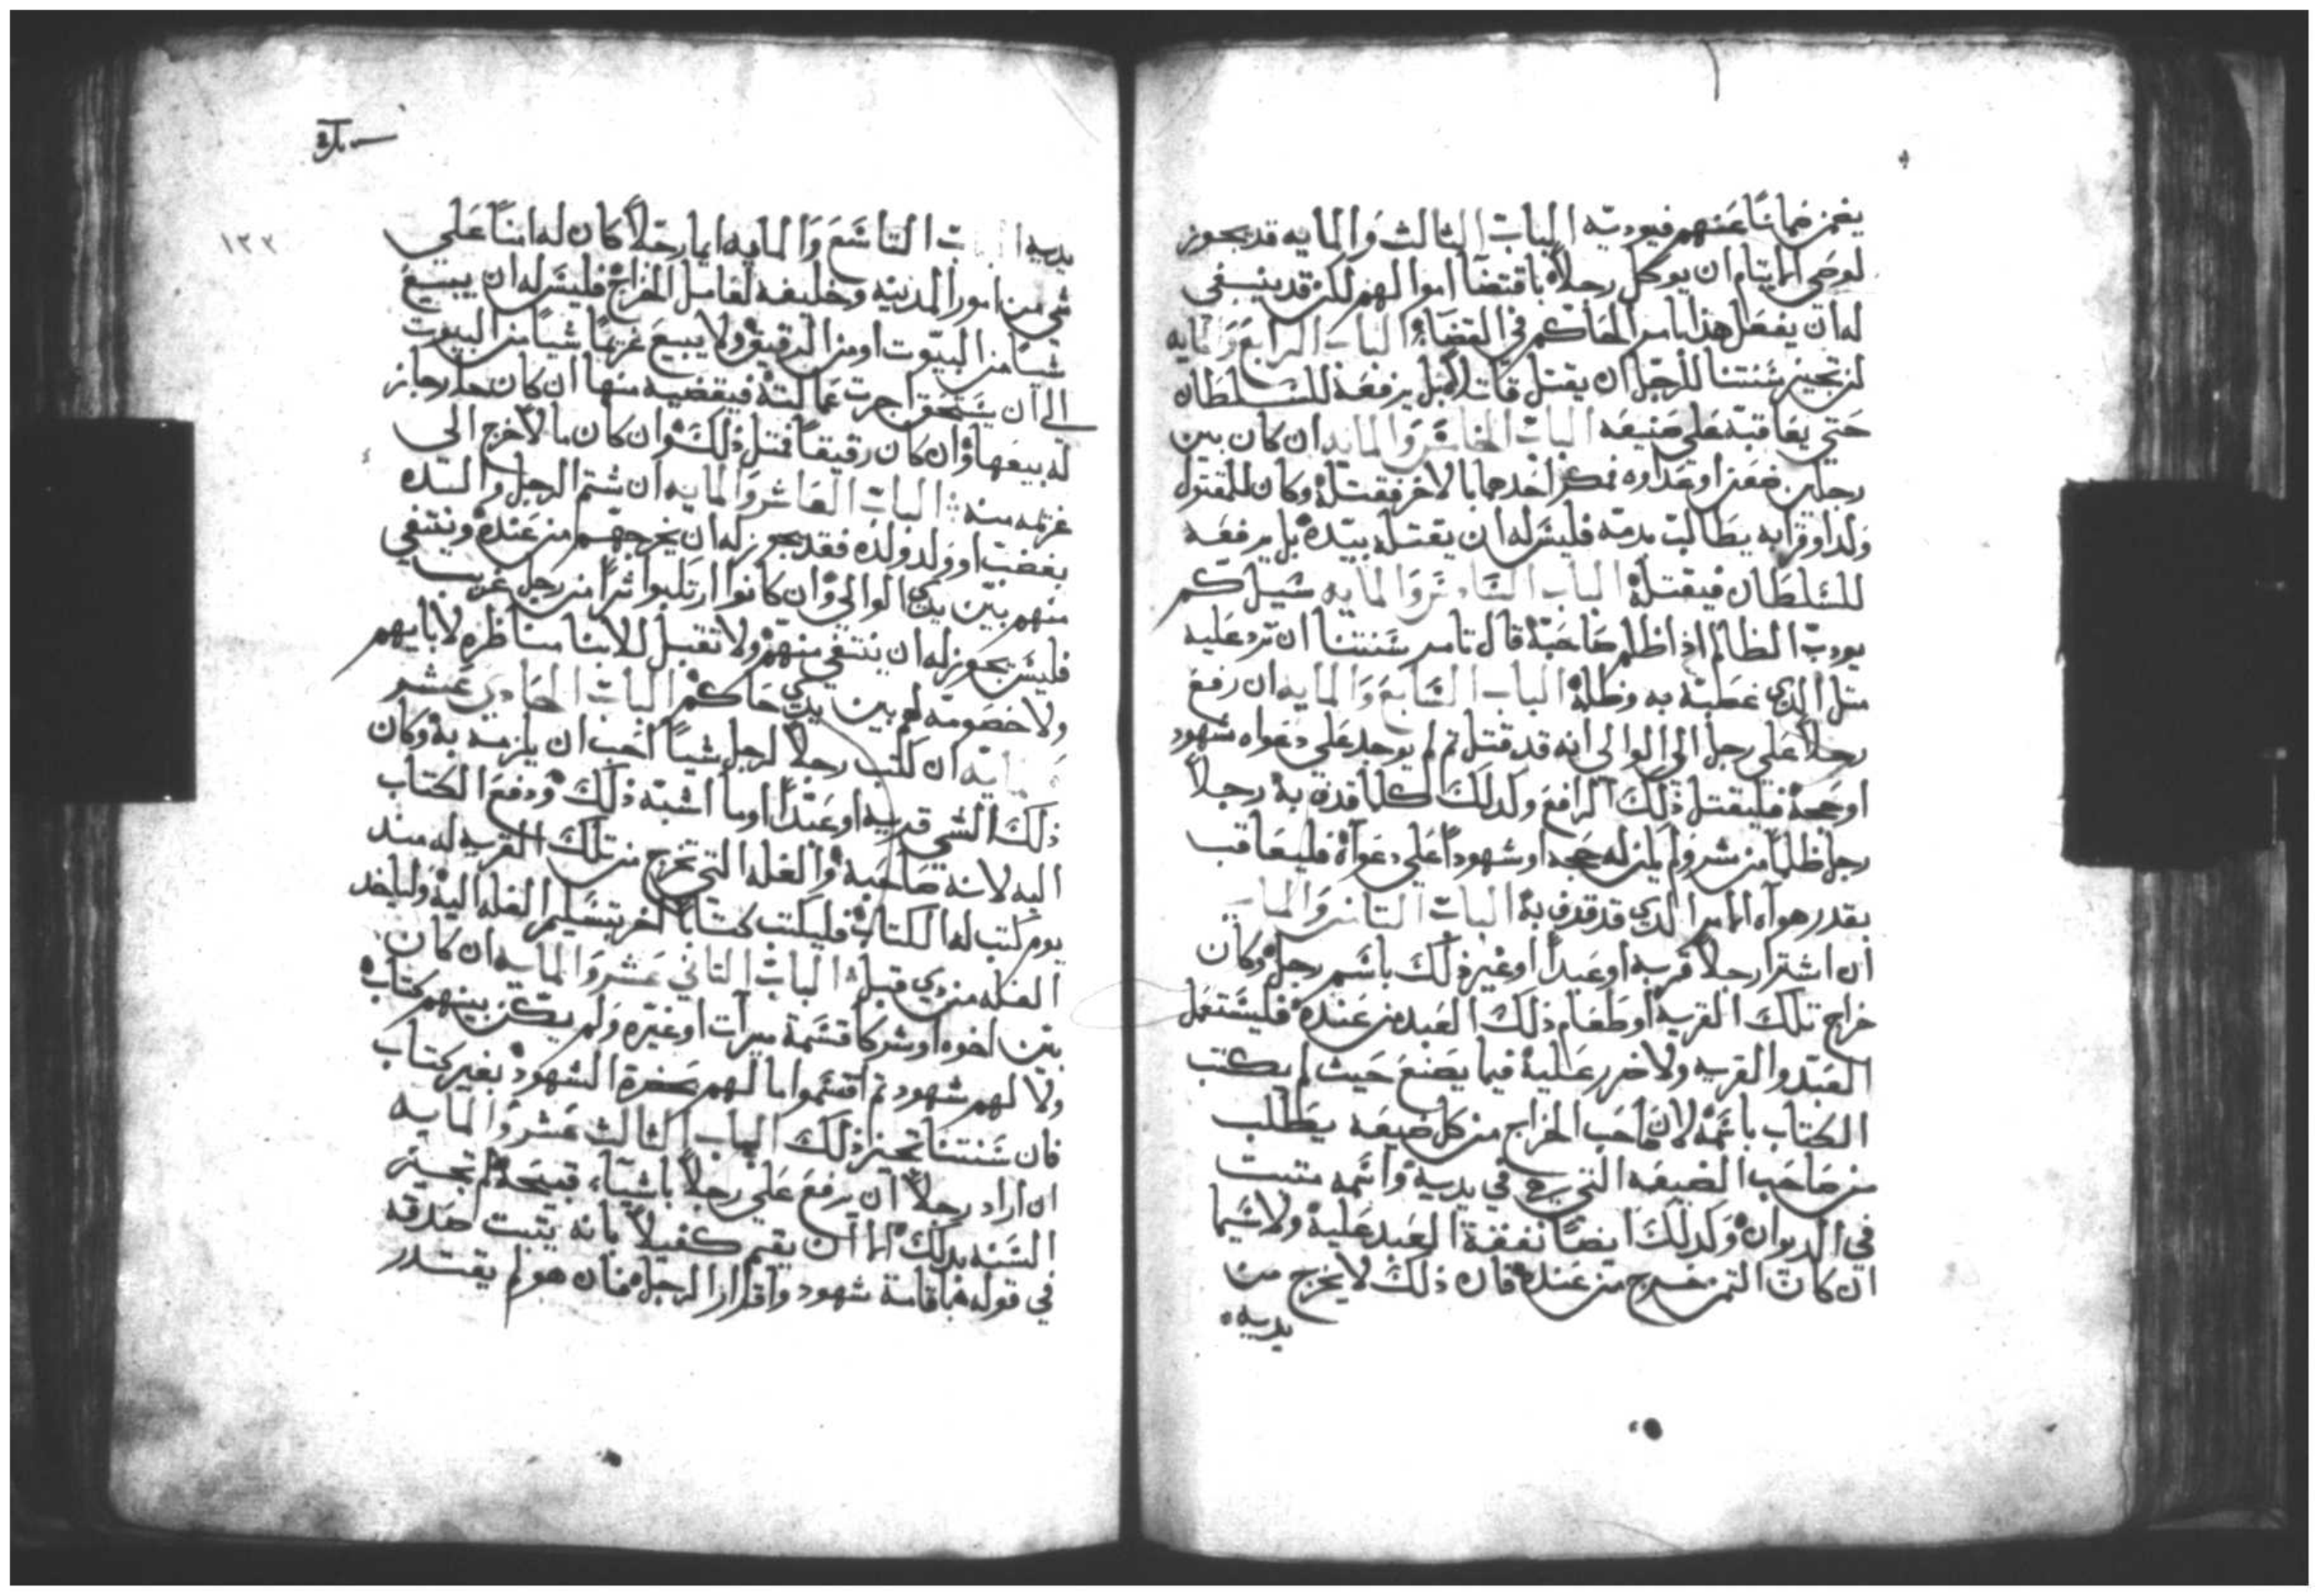 يغمز ضمانًا عنهم فيوديه الباب الثالث والمايه قد يجوز
لوصي الايتام ان يوكل رجلاً باقتضا اموالهم لكن قد ينبغي
له ان يفعل هذا بامر الحاكم في القضاء الباب الرابع والمايه
لن تجيز سنتنا للرجل ان يقتل قاتلاً بل يرفعه للسلطان
حتي يعاقبه علي صنيعه الباب الخامس والمايه ان كان بين
رجلين ضغن او عداوه فمكر احدهما بالاخر فقتله وكان للمقتول
ولد او قرابه يطالب بدمه فليس له ان يقتله بيده بل يرفعه
للسلطان فيقتله الباب السادس والمايه سيل كم
يودب الظالم اذا ظلم صاحبه قال تامر سنتنا ان ترد عليه
مثل الذي غصبه به وظلمه الباب السابع والمايه ان رفع
رجلاً علي رجل الي الوالي انه قد قتل ثم لم يوجد علي دعواه شهود
او حجه فليقتل ذلك الرافع وكدلك كلما قدف به رجلاً
رجل ظلماً من شر ولم يكن له حجه او شهوداً علي دعواه فليعاقب
بقدر هواه الامر الدي قد قدف به الباب الثامن والمايه
ان اشترا رجلاً قريه او عبداً او غير ذلك باسم رجل وكان
خراج تلك القريه او طعام ذلك العبد من عنده فليستعمل
العبد والقريه ولا ضرر عليه فيما يصنع حيث لم يكتب
الكتاب باسمه لان صاحب الخراج من كل ضيعه يطلب
من صاحب الضيعه التي هي في يديه واسمه مثبت
في الديوان وكدلك ايضًا نفقة العبد عليه ولا سيما
ان كان الثمن خرج من عنده فان ذلك لا يخرج من
يديه
١٢٢
يديه الباب التاسع والمايه ايما رجلاً كان له امنًا علي
شي من امور المدينه وخليفه لعامل الخراج فليس له ان يبيع
شيًا من البيوت او من الرقيق ولا يبيع غريمًا شيًا من البيوت
الي ان يستحق اجرت عمالته فيقضيه منها ان كان حاجز
له بيعها وان كان رقيقًا فمثل ذلك وان كان مالاً خرج الي
غريمه منه الباب العاشر والمايه ان شتم الرجل والده
بغضب او ولد ولده فقد يجوز له ان يخرجهم من عنده وينتفي
منهم بين يدي الوالي وان كانوا ارتكبوا شرًا من رجل غريب
فليس يجوز له ان ينتفي منهم ولا تقبل للابنا مناظره لابايهم
ولا خصومه لهم بين يدي حاكم الباب الحادي عشر
والمايه ان كتب رجلاً لرجل شيًا احب ان يلزمه به وكان
ذلك الشي قريه او عبدًا او ما اشبه ذلك ودفع الكتاب
اليه لانه صاحبه والغله التي تخرج من تلك القريه له مند
يوم كتب له الكتاب فليكتب كتابًا اخر بتسليم الغله اليه ولياخد
الغله من دي قبل الباب الثاني عشر والمايه ان كان
بين اخوه او شركا قسمة ميراث او غيره ولم يكن بينهم كتاب
ولا لهم شهود ثم اقتسموا مالهم بحضرة الشهود بغير كتاب
فان سنتنا تجيز ذلك الباب الثالث عشر والمايه
ان اراد رجلاً ان يرفع علي رجلاً باشياء قبيحه لم تجيز
السنه بدلك الا ان يقيم كفيلاً بانه يثبت صدقه
في قوله باقامة شهود واقرار الرجل فان هو لم يقتدر